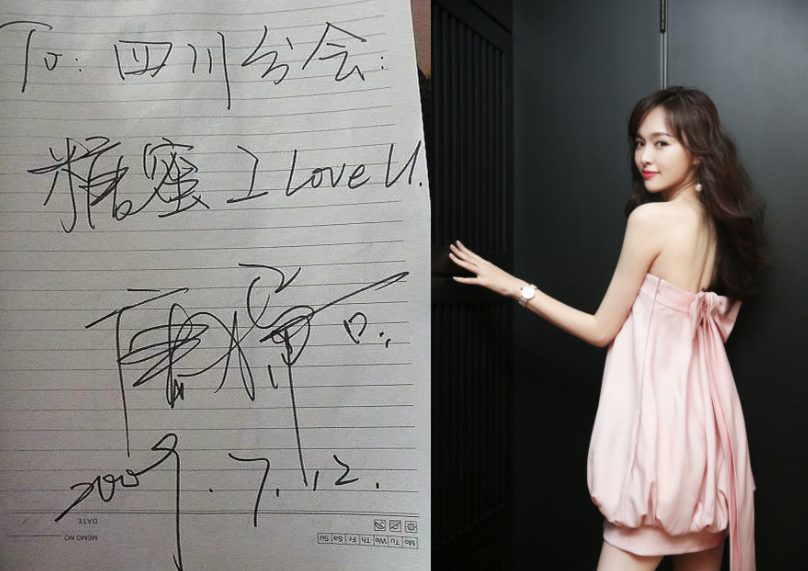 To: 四川分会:
糖蜜 I Love U.
2009.7.12.
DATE
MEMO NO.
Mo Tu We Th Fr Sa Su